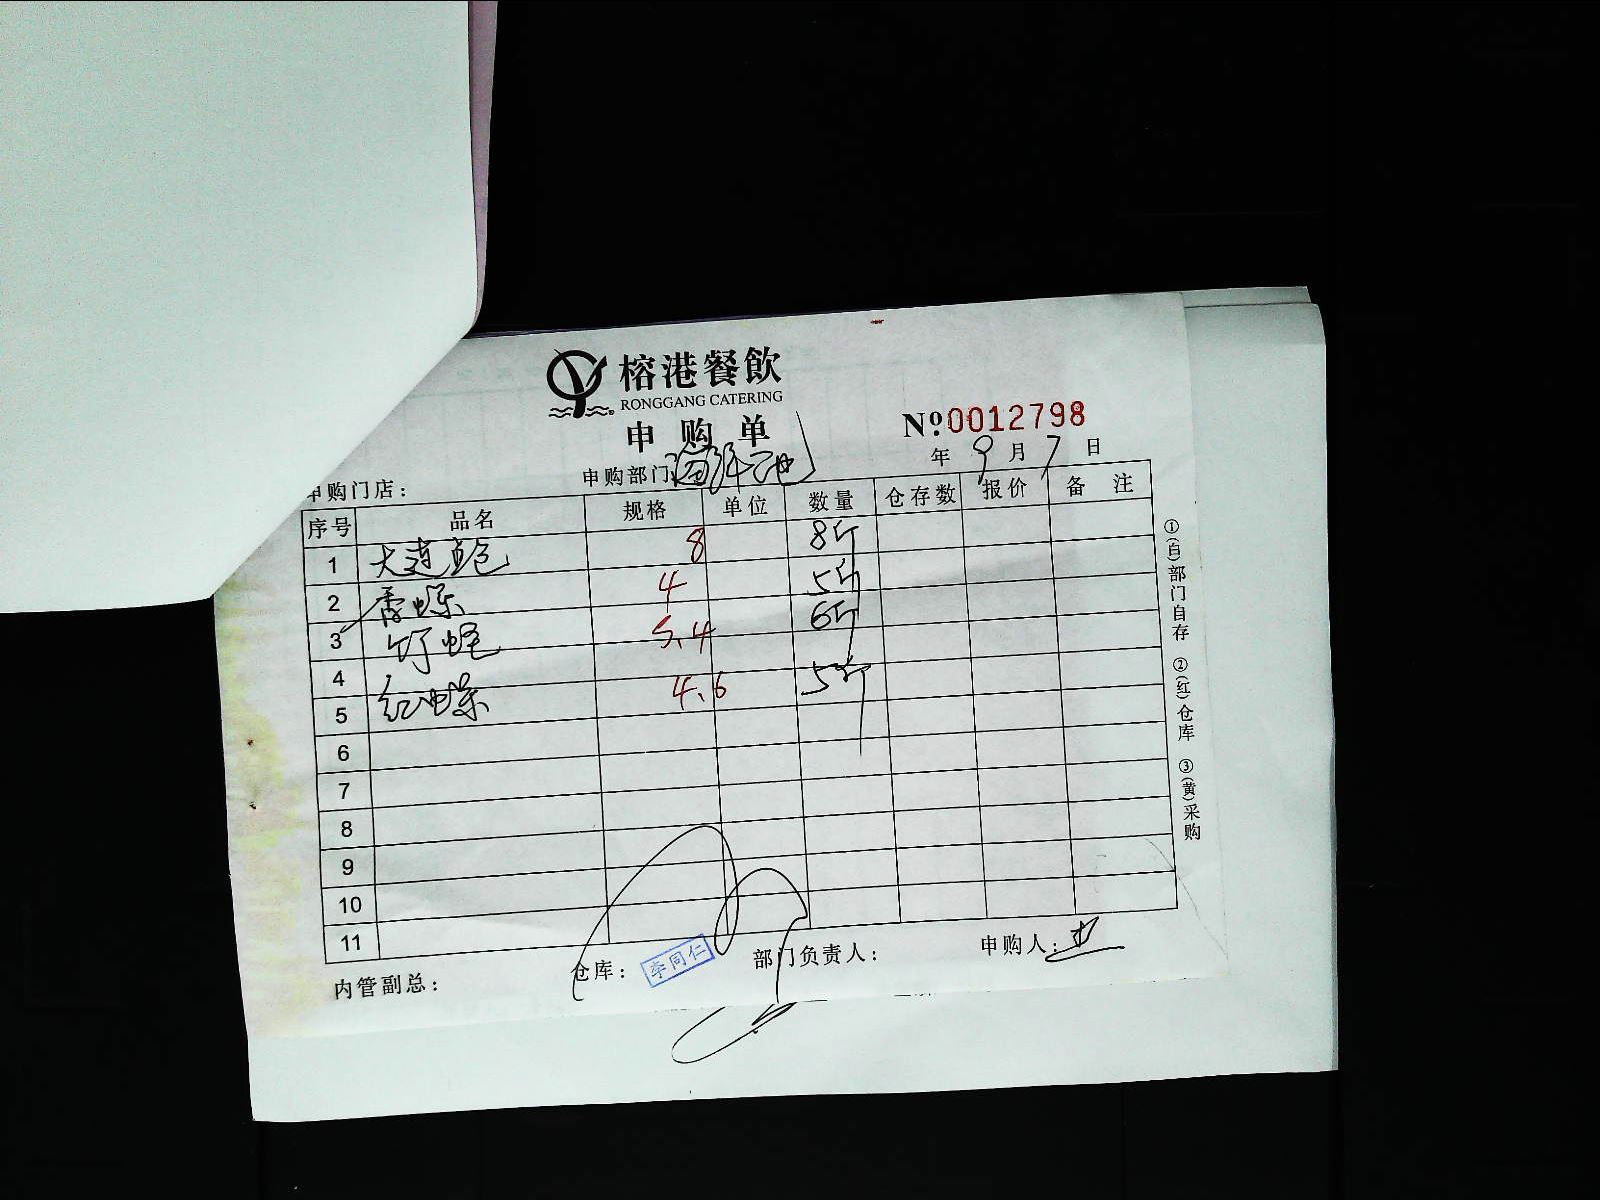 榕港餐飲
RONGGANG CATERING
申购单
№ 0012798
年 9 月 7 日
申购门店： 申购部门 海鲜池
序号 品名 规格 单位 数量 仓存数 报价 备注
1 大连鲍 8 8斤
2 香螺 4 5斤
3 竹蛏 5.4 6斤
4
5 红螺 4.6 5斤
6
7
8
9
10
11
内管副总： 仓库： 李同仁 部门负责人： 申购人：
①(白)部门自存 ②(红)仓库 ③(黄)采购